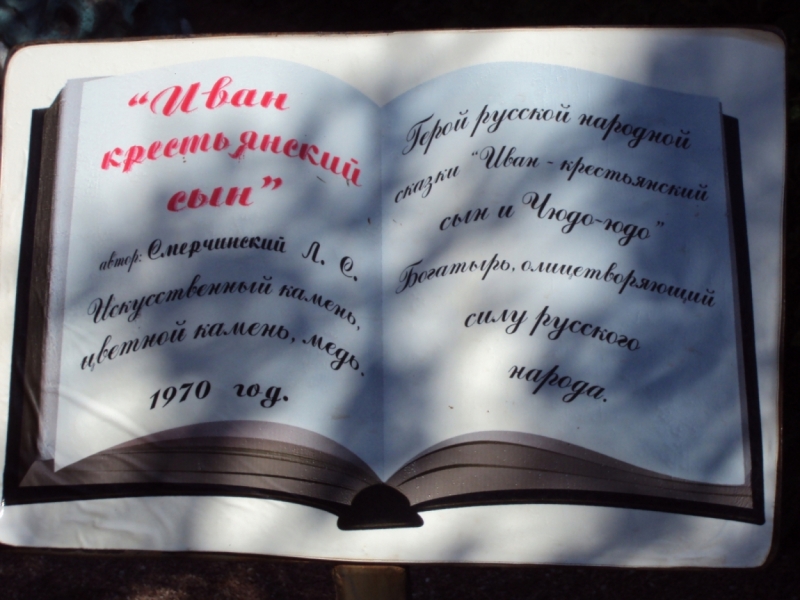 “Иван
крестьянский
сын”
автор: Смерчинский Л. С.
Искусственный камень,
цветной камень, медь.
1970 год.
Герой русской народной
сказки “Иван - крестьянский
сын и Чюдо-юдо”
Богатырь, олицетворяющий
силу русского
народа.